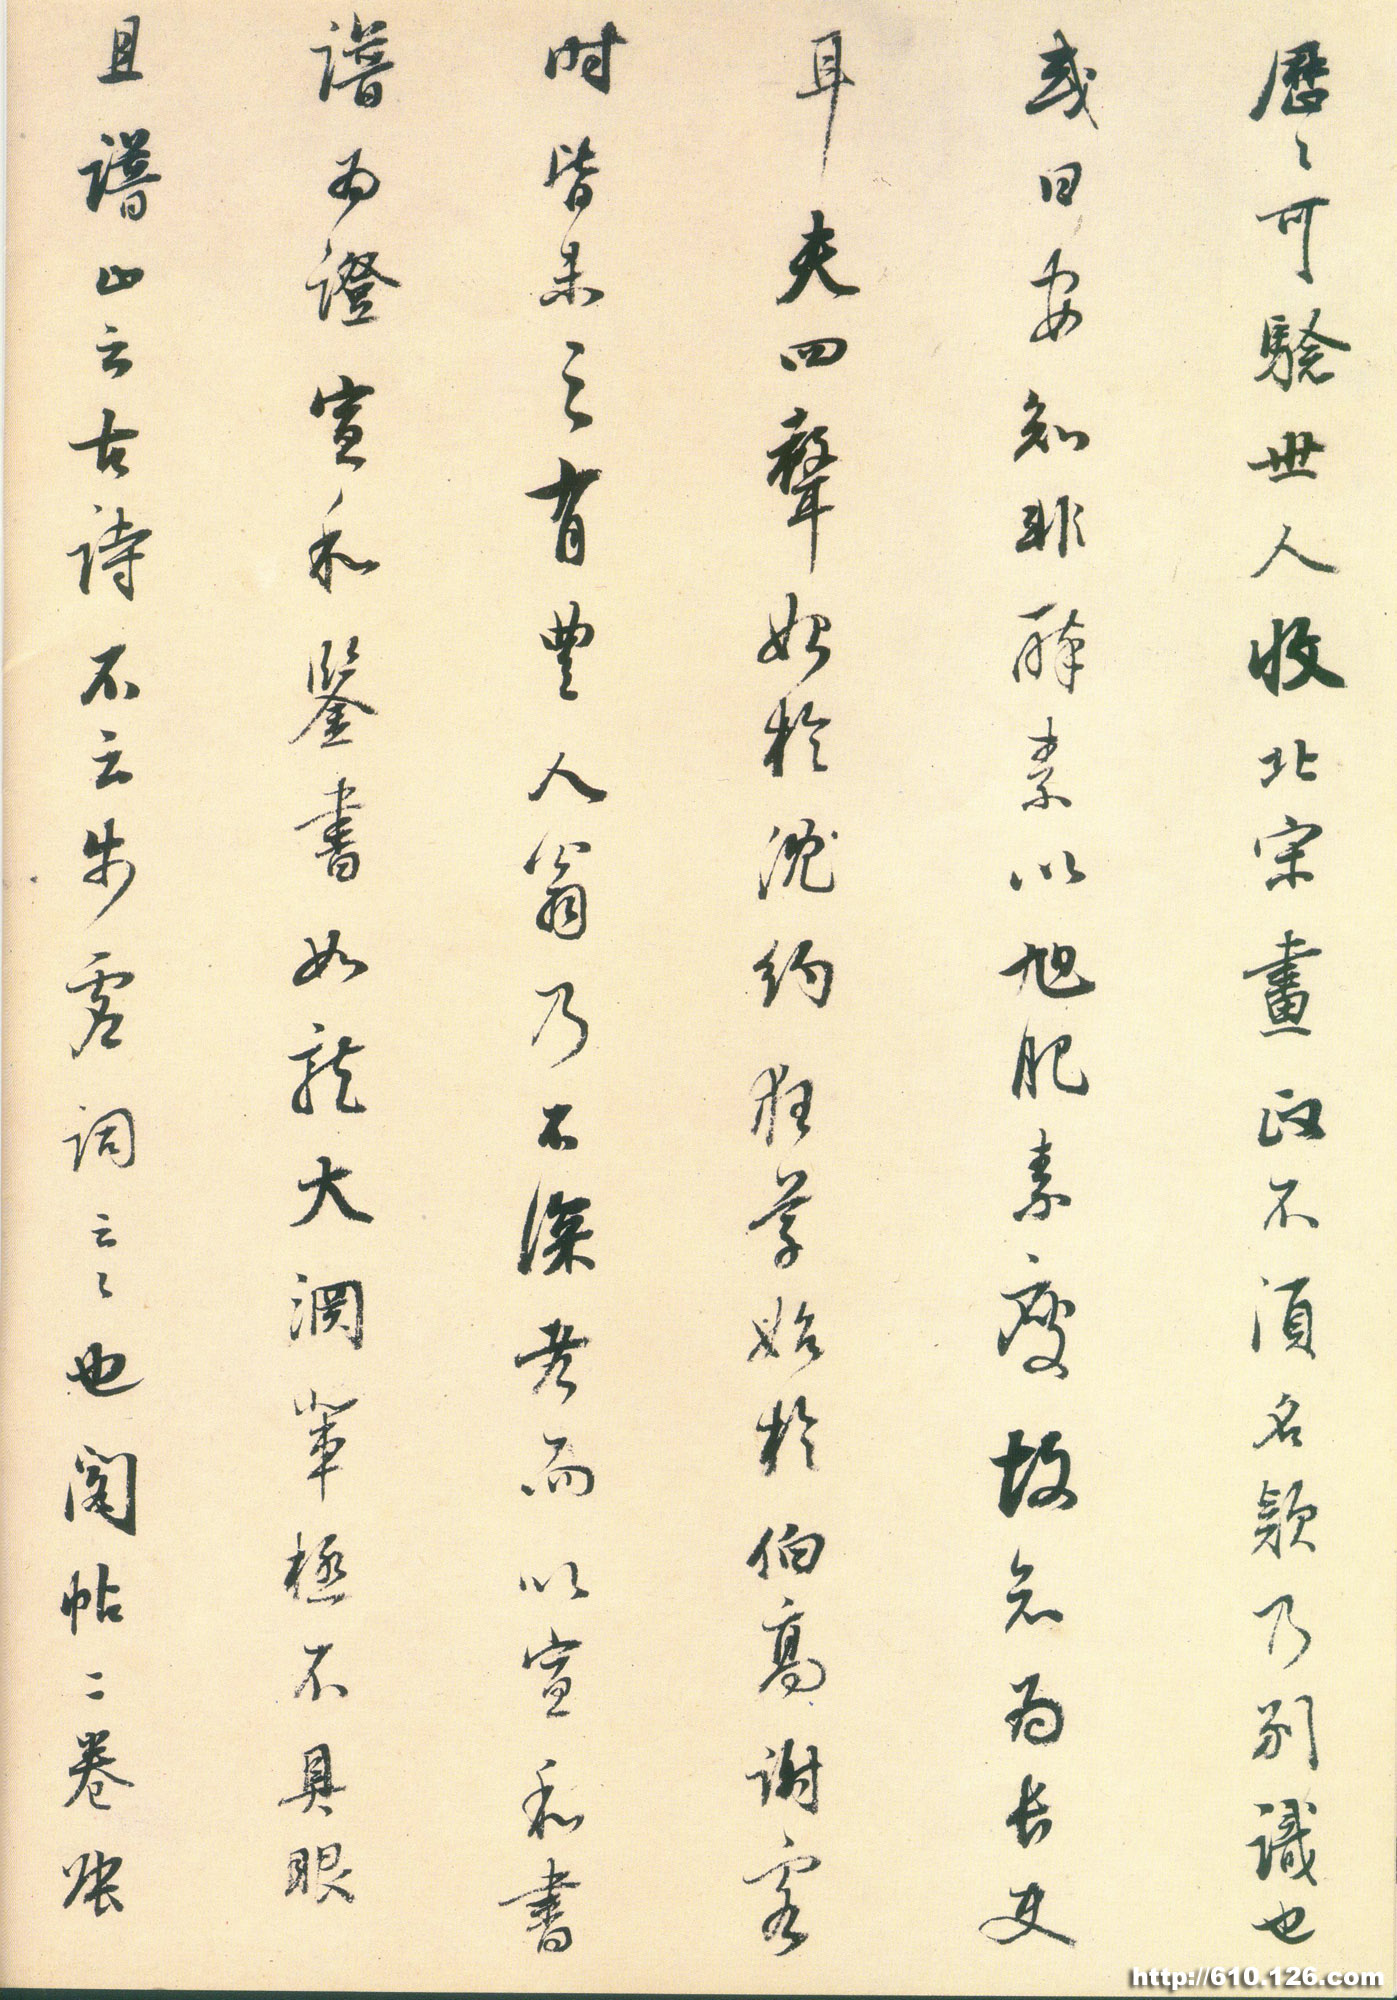 歷〻可驗世人收北宋畫政不須名款乃別識也
或曰安知非醉素以旭肥素瘦故知為長史
耳夫四聲始於沈約狂草始於伯高謝客
時皆未之有豐人翁乃不深考而以宣和書
譜為證宣和鑒書如龍大淵輩極不具眼
且譜止云古詩不云步虛詞云〻也閣帖二卷張
http://610.126.com